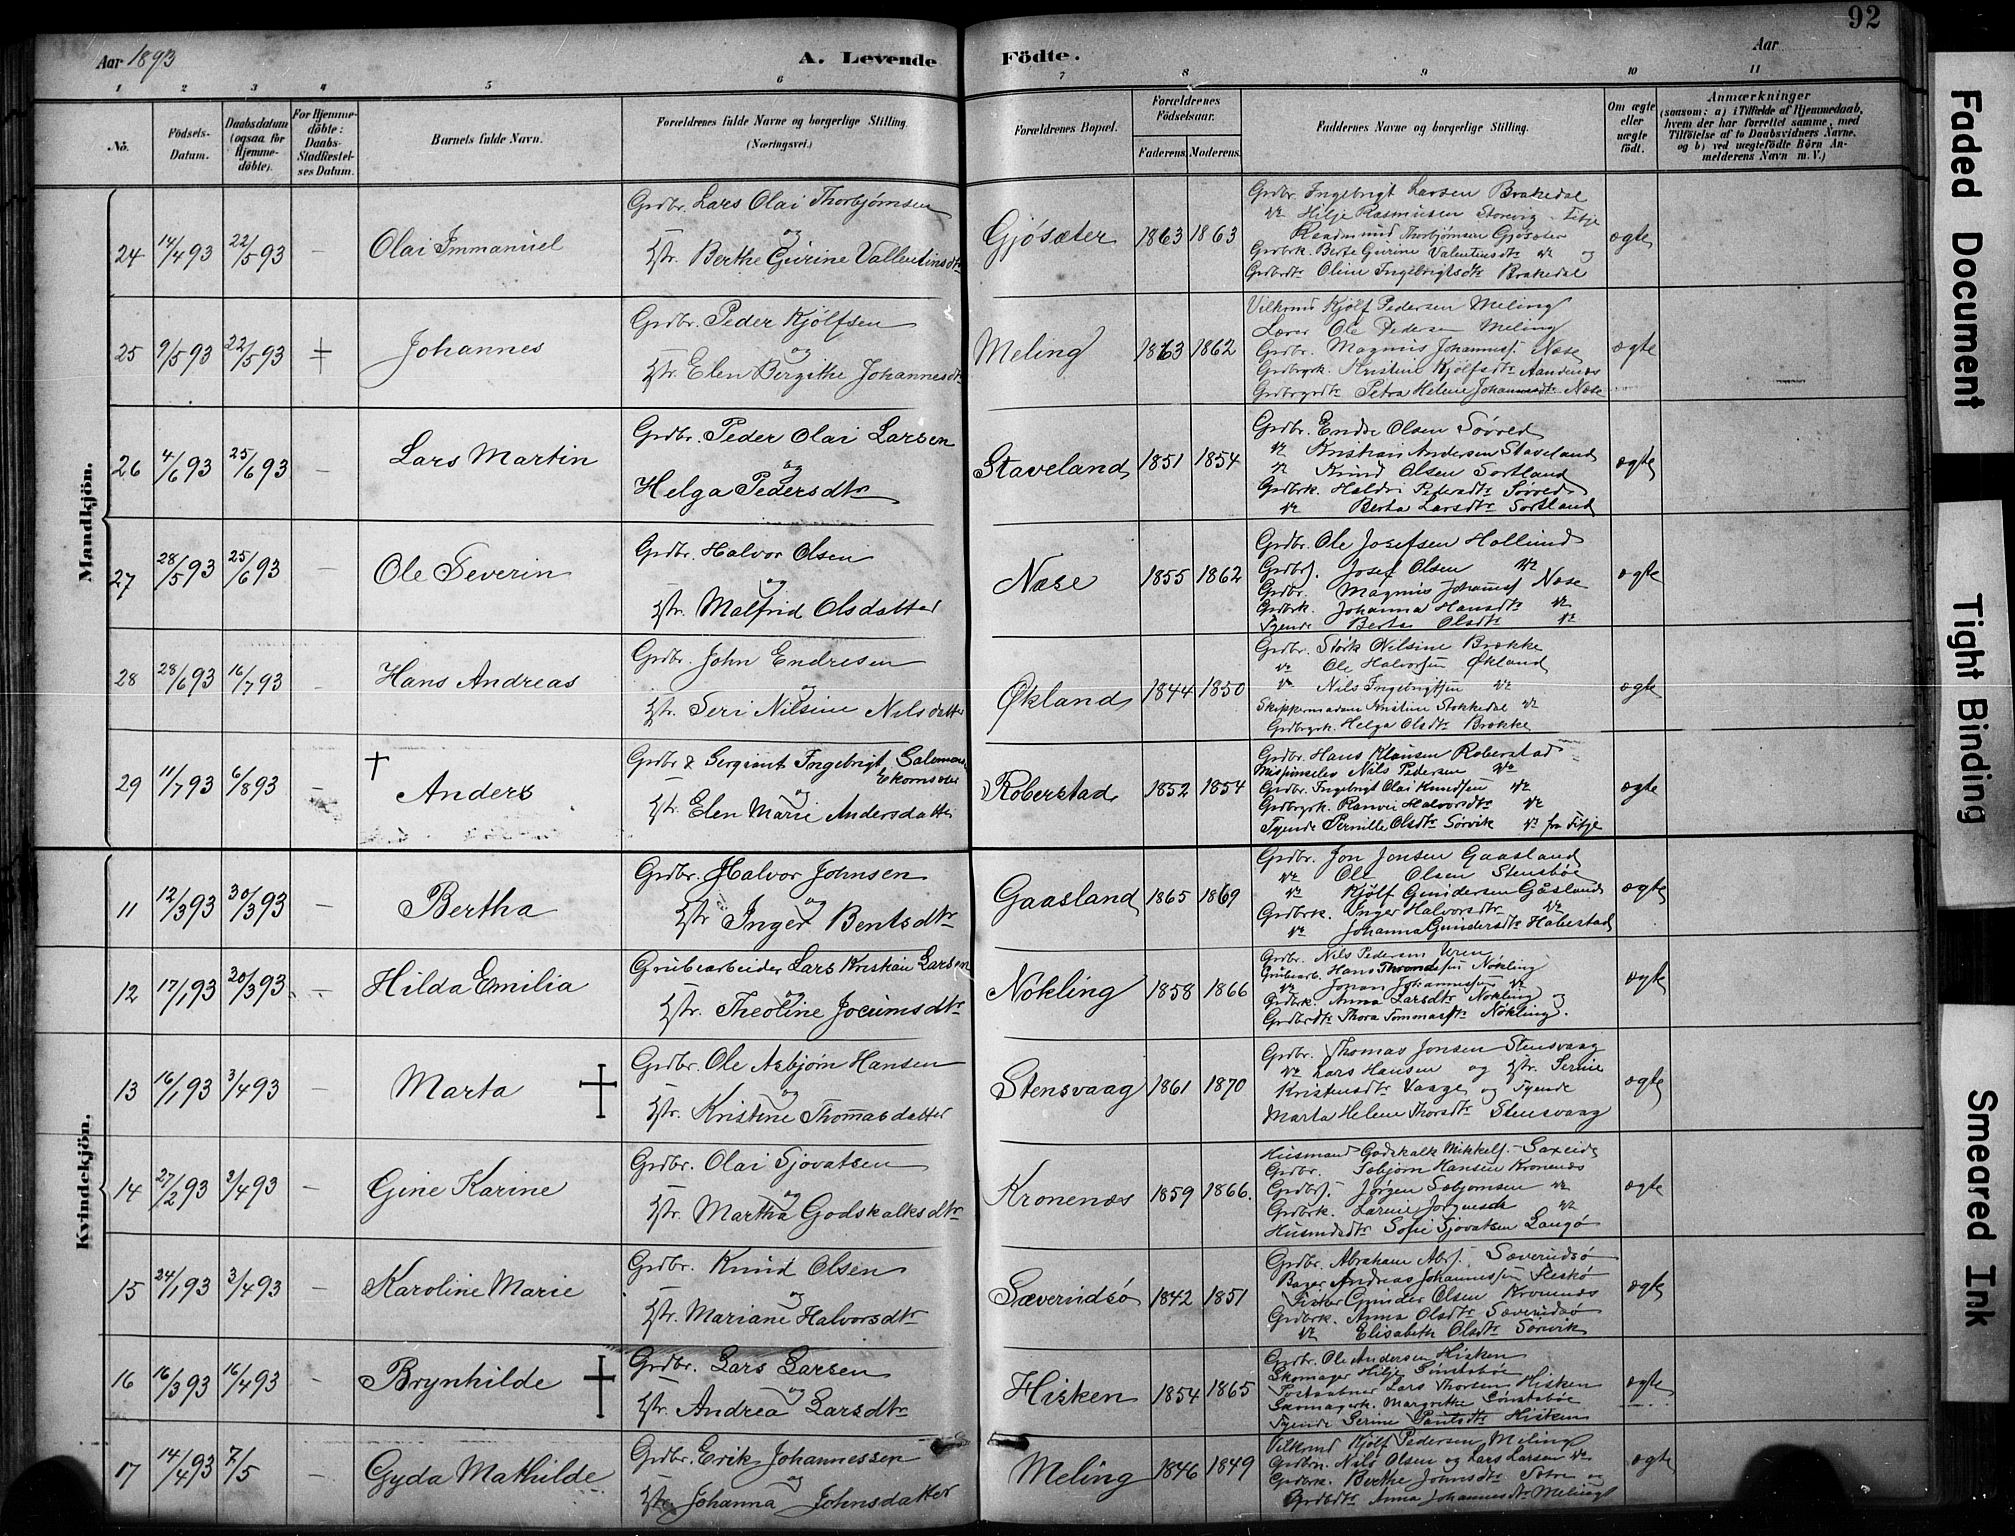 92
Aar 1893
A. Levende Födte.
Aar
1 2 3 4 5 6 7 8 9 10 11
No.
Födsels-Datum.
Daabsdatum (ogsaa for Hjemme-döbte).
For Hjemme-döbte: Daabs-Stadfæstel-ses Datum.
Barnets fulde Navn.
Forældrenes fulde Navne og borgerlige Stilling. (Næringsvei.)
Forældrenes Bopæl.
Forældrenes Födselsaar.
Faderens. Moderens.
Faddernes Navne og borgerlige Stilling.
Om ægte eller uægte födt.
Anmærkninger
(saasom: a) i Tilfælde af Hjemmedaab, hvem der har forrettet samme, med Tilföielse af to Daabsvidners Navne, og b) ved uægtefödte Börn Anmelderens Navn m. V.)
Mandkjön.
24 14/4 93 22/5 93 – Olai Immanuel
Grdbr. Lars Olai Thorbjørnsen
og
Hstr. Berthe Gurine Vallentinsdtr
Gjösæter 1863 1863
Grdbr. Ingebrigt Larsen Brakedal
Hilje Rasmusen Storevig Fitje
Thorbjørnsen Gjösæter
Grdbrk. Berte Gurine Valentinsdtr og
Grdbrdtr Oline Ingebrigtsdtr Brakedal
ægte
25 9/5 93 22/5 93 Johannes
Grdbr. Peder Kjölfsen
og
Hstr. Elen Bergithe Johannesdtr
Meling 1863 1862
Kjölf Pedersen Meling
Lærer Ole Pedersen Meling
Grdbr. Magnus Johanness. Næse
Kristine Kjölfsdtr
Petra Helene Johannesdtr Næse
ægte
26 4/6 93 25/6 93 – Lars Martin
Grdbr. Peder Olai Larsen
og
Helga Pedersdtr
Staveland 1851 1854
Grdbr. Endre Olsen Sövred
Kristian Andersen Staveland
Knud Olsen Sortland
Grdbrk. Pedersdtr Sövred
Berta Larsdtr Sortland
ægte
27 28/5 93 25/6 93 – Ole Severin
Grdbr. Halvor Olsen
og
Hstr. Malfrid Olsdatter
Næse 1855 1862
Grdbr. Ole Josefsen Hollund
Josef Olsen
Grdbr. Magnus Johannes Næse
Grdbrk. Johanna Hansdtr
Tyende Berta Olsdtr
ægte
28 28/6 93 16/7 93 – Hans Andreas
Grdbr. John Endresen
og
Hstr. Seri Nilsine Nilsdatter
Økland 1844 1850
Grdbr. Störk Nilsine Brække
Ole Halvorsen Økland
Nils Ingebrigtsen
Skippermadam Kristine Stokkedal
Helga Olsdtr Brokke
ægte
29 11/7 93 6/8 93 – † Anders
Grdbr & Sergeant Ingebrigt Salomons. Ekornsæter
og
Hstr. Elen Marie Andersdatter
Roberstad 1852 1854
Grdbr. Hans Klausen Roberstad
Nils Pedersen
Grdbr. Ingebrigt Olai Knudsen
Ranvei Halvorsdtr
Tyende Pernille Olsdtr Sörvik fra Fitje
ægte
Kvindekjön.
11 12/3 93 30/3 93 – Bertha
Grdbr. Halvor Johnsen
og
Hstr. Inger Bentsdtr
Gaasland 1865 1869
Grdbr. Jon Jonsen Gaasland
Ole Olsen Stensböe
Kjölf Gundersen Gåsland
Grdbrk. Inger Halvorsdtr
Johanna Gundersdtr Haberstad
ægte
12 17/1 93 30/3 93 – Hilda Emilia
Grubearbeider Lars Kristian Larsen
og
Hstr. Theoline Jocumsdtr
Nökling 1858 1866
Grdbr. Nils Pedersen Uren
Grubearb. Hans Nökling
Jonas Johannessen
Grdbrk. Anna Larsdtr Nökling og
Grdbrdtr Thora Nökling.
ægte
13 16/1 93 3/4 93 – Marta †
Grdbr. Ole Asbjørn Hansen
og
Hstr. Kristine Thomasdatter
Stensvaag 1861 1870
Grdbr. Thomas Jonsen Stensvaag
Lars Hansen og Hstr. Serine
Kristensdtr Vaage og Tyende
Marta Helene Thorsdtr Stensvaag
ægte
14 27/2 93 3/4 93 – Gine Karine
Grdbr. Olai Sjovatsen
og
Hstr. Martha Godskalksdtr
Kronenæs 1859 1866.
Husmand Godskalk Mikkels. Saxeide
Grdbr. Sæbjørn Hansen Kronenæs
Jørgen Sæbjørnsen
Grdbrk. Larine
Sofie Sjovatsen Langø
ægte
15 24/1 93 3/4 93 – Karoline Marie
Grdbr. Knud Olsen
og
Hstr. Mariane Halvorsdtr
Sæverudsö 1842 1851
Grdbr. Abraham Abr. Sæverudsö
Bager Andreas Johannessen
Fisker Gunder Olsen Kronenæs
Grdbrk. Anna Olsdtr Sæverudsö
Elisabeth Olsdtr Sörvik
ægte
16 16/3 93 16/4 93 – Brynhilde †
Grdbr. Lars Larsen
og
Hstr. Andrea Larsdtr
Hisken 1854 1865
Grdbr. Ole Andersen Hisken
Skomager Hilje
Postaabner Lars Thorsen Hisken
Skomagerk. Margrethe
Tyende Serine Paulsdtr Hisken
ægte
17 14/4 93 7/5 – Gyda Mathilde
Grdbr. Erik Johannessen
og
Hstr. Johanna Johnsdatter
Meling 1846 1849
Kjölf Pedersen Meling
Nils Olsen og Lars Larsen
Grdbrk. Berthe Johnsdtr og
Grdbdtr Anna Johannesdtr Meling
ægte
Faded Document
Tight Binding
Smeared Ink